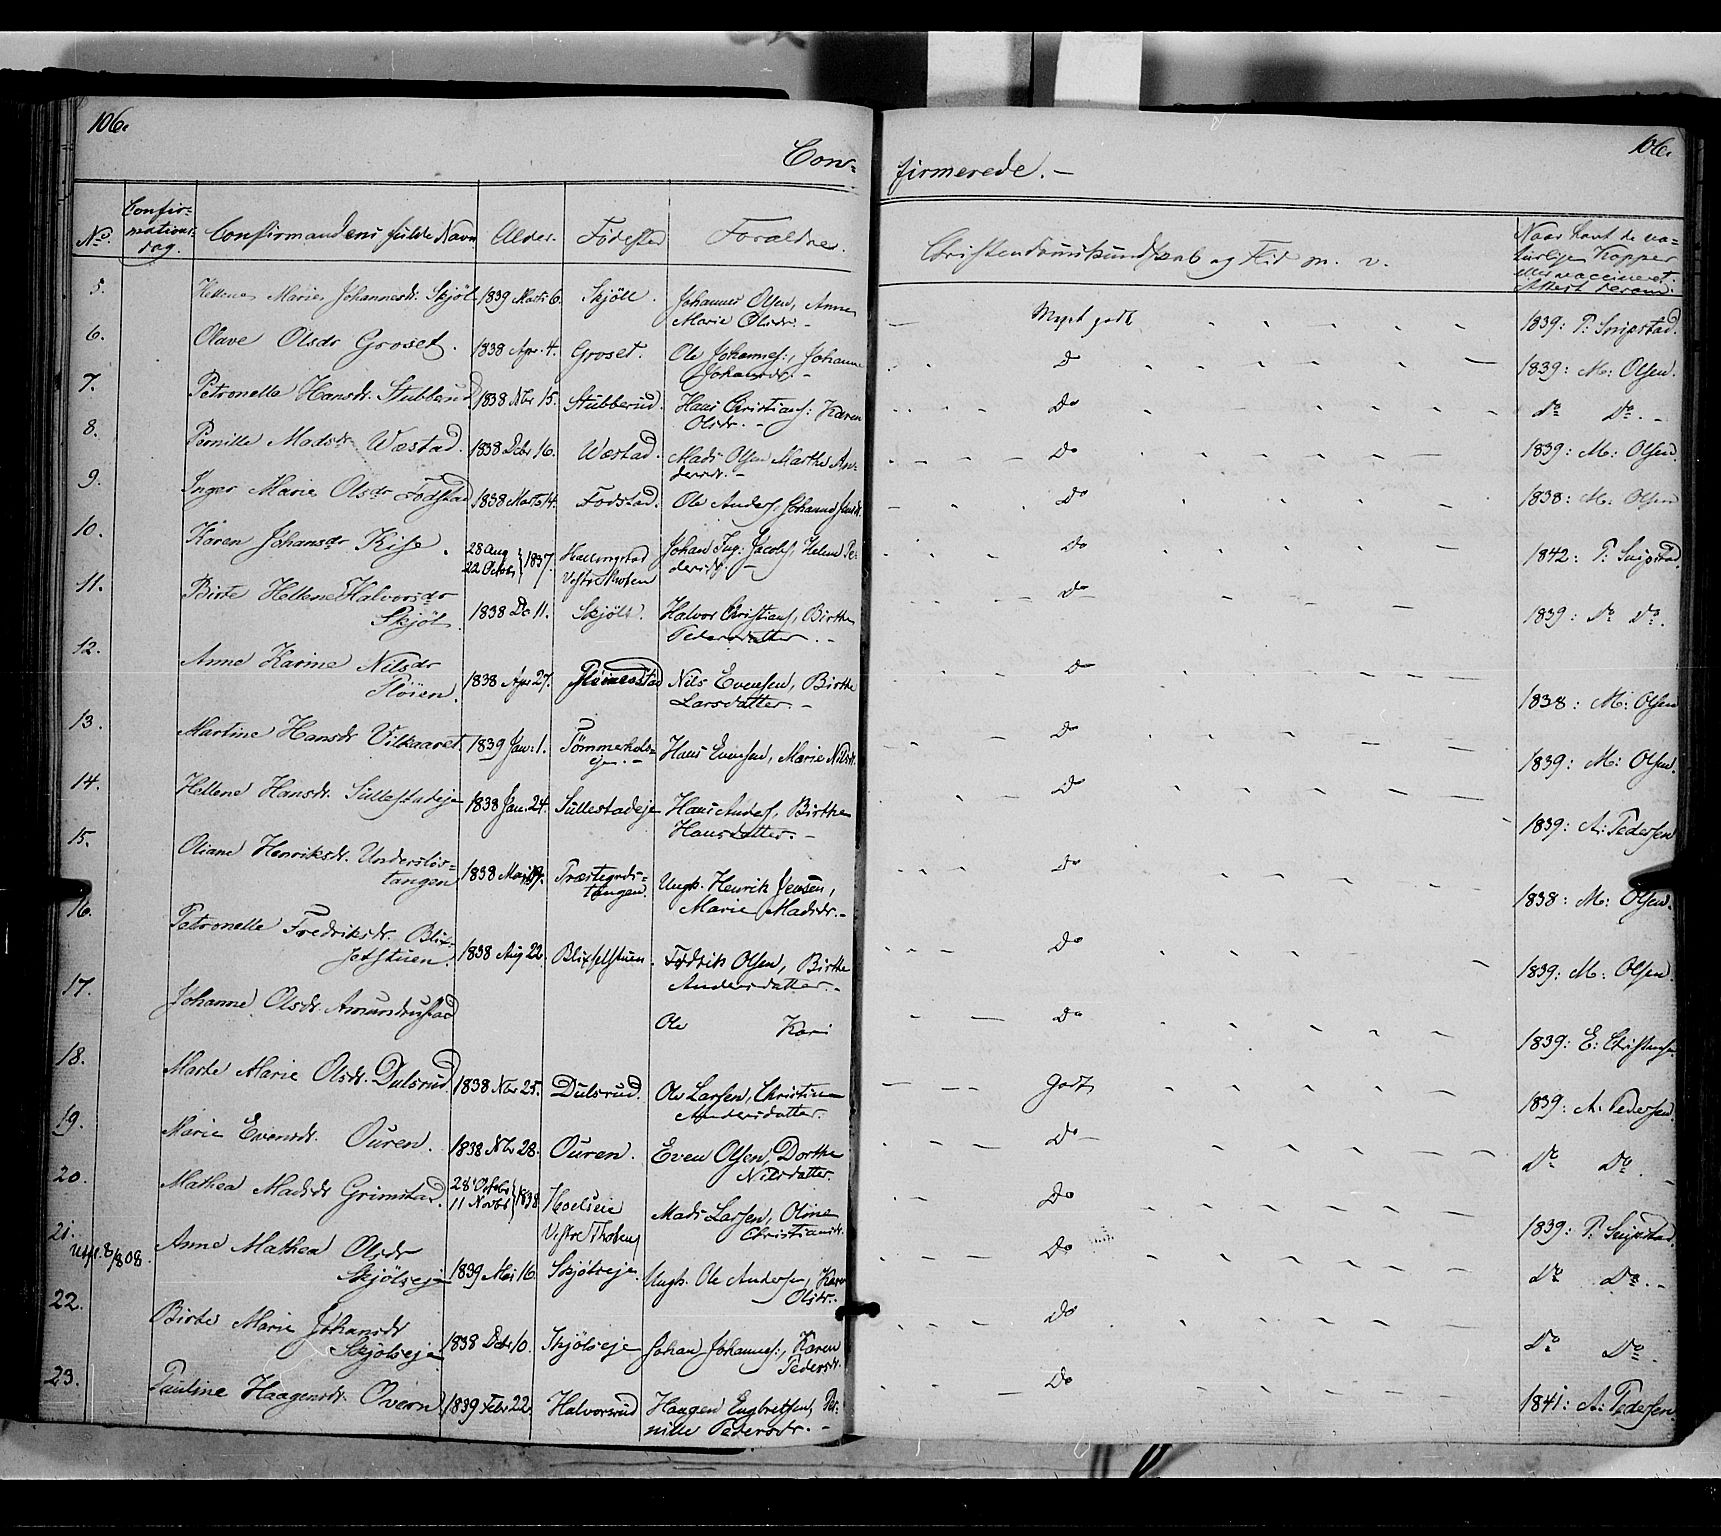 106.
Con=
firmerede. —
106.
No.
Confir=
mations
dag.
Confirmandens fulde Navn
Alder.
Fødested
Forældre.
Christendomskundskab og Flid m. v.
Naar havt de na=
turlige Kopper
eller vaccineret
Attest derom.
5. Hellene Marie Johannesdr. Skjöll 1839 Marts 6. Skjöll. Johannes Olsen, Anne
Marie Olsdr. — Meget godt 1839: P. Snipstad.
6. Olave Olsdr Groset. 1838 Apr. 4. Groset. Ole Johannes:, Johanne
Johansdr. — Do 1839: M: Olsen.
7. Petronelle Hansdr. Stubberud 1838 Nbr 15. Stubberud. Hans Christians: Karen
Olsdr. — Do Do Do. —
8. Pernille Madsdr Wæstad. 1838 Debr 16. Wæstad. Mads Olsen Marthe An=
dersdr. — Do 1839: M: Olsen
9. Inger Marie Olsdr Fodstad 1838 Marts 14. Fodstad. Ole Anders. Johanne Jensdr. Do 1838: M: Olsen
10. Karen Johansdr Kise. 28 Aug
22 Octobr } 1837. Hallingstad
Vestre Thoten Johan Ing: Jacobs, Helene Pe=
dersdr. — Do 1842: P. Snipstad.
11. Birte Hellene Halvorsdr
Skjöl. 1838 De 11. Skjöll. Halvor Christians, Birthe
Pedersdatter. — Do 1839: Do Do.
12. Anne Karine Nilsdr
Plöien. 1838 Apr 27. Nils Evensen, Birthe
Larsdatter. — Do 1838: M: Olsen
13. Martine Hansdr Vilkaaret 1839 Jan: 1. Tömmerhols=
eje. — Hans Evensen, Marie Nilsdr. Do 1839: M: Olsen.
14. Hellene Hansdr. Sullestadeje 1838 Jan. 24. Sullestadeje Hans Anders, Birthe
Hansdatter. — Do 1839: A: Pedersen
15. Oliane Henriksdr. Underslös=
tangen 1838 Mai 19. Præstegrds=
tangen. Ungk. Henrik Jensen,
Marie Madsdr. — Do 1838: M: Olsen.
16. Petronelle Fredriksdr. Blix=
setstuen. 1838 Aug 22. Blixselstuen. Fredrik Olsen, Birthe
Andersdatter. — Do 1839: M: Olsen
17. Johanne Olsdr. Amundrustad Ole Kari Do 1839: E: Christensen
18. Marte Marie Olsdr. Dulsrud 1838 Nbr 25. Dulsrud. Ole Larsen, Christine
Andersdatter. Godt 1839: A. Pedersen
19. Marie Evensdr. Ouren. 1838 Nbr 28. Ouren. Even Olsen, Dorthe
Nilsdatter. Do — Do Do.
20. Mathea Madsdr Grimstad. 28 Octobr
11 Novbr } 1838 Hoelseie
Vestre Thoten Mads Larsen, Oline
Christiansdr. Do 1839: P. Snipstad.
21. Utfl. 8/8 08. Anne Mathea Olsdr
Skjölseje 1839 Mai 16. Skjölseje. Ungk. Ole Andersen, Karen
Olsdr. — Do Do Do. —
22. Birte Marie Johansdr
Skjölseje 1838 Debr 10. Skjölseje Johan Johannes:, Karen
Pedersdr. Do Do Do.
23. Pauline Haagensdr. Overn 1839 Febr 22. Halvorsrud Haagen Engbretsen, Per=
nille Pedersdr. — Do 1841: A: Pedersen.